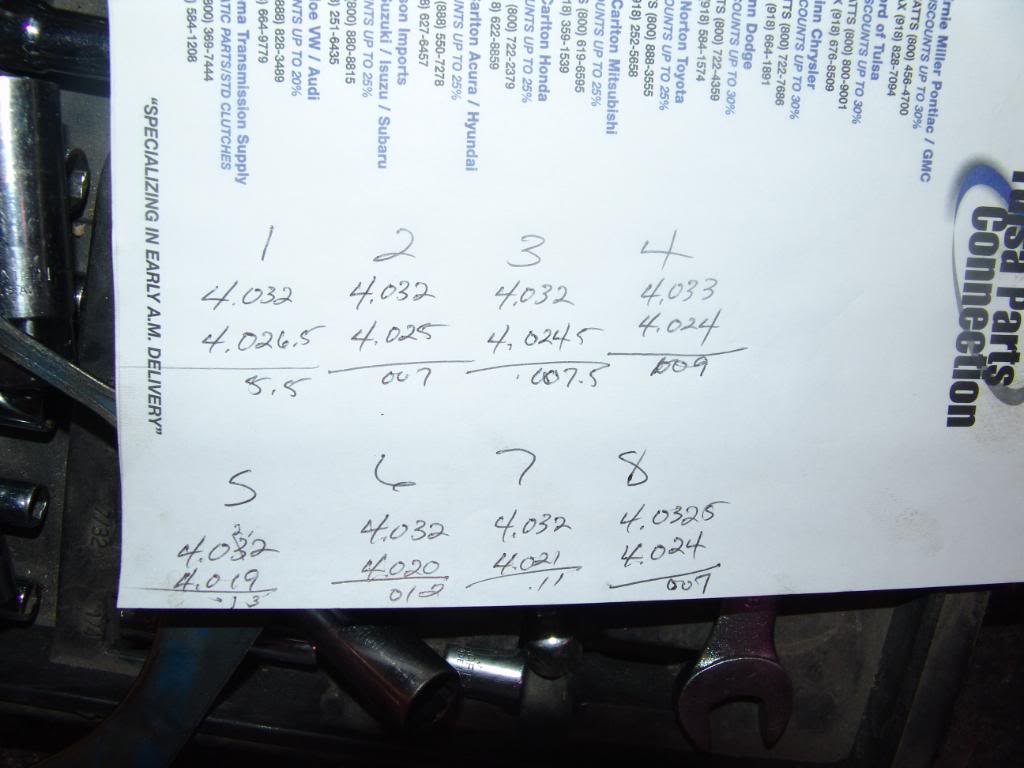 Tulsa Parts
Connection
rnie Miller Pontiac / GMC
ISCOUNTS UP TO 30%
ATTS (800) 456-4700
AX (918) 828-7094
ord of Tulsa
SCOUNTS UP TO 30%
ATTS (800) 800-9001
X (918) 676-8509
inn Chrysler
COUNTS UP TO 30%
TTS (800) 722-7686
(918) 664-1891
nn Dodge
COUNTS UP TO 30%
TS (800) 722-4359
(918) 584-1574
Norton Toyota
OUNTS UP TO 25%
S (800) 888-3555
918) 252-5658
Carlton Mitsubishi
UNTS UP TO 25%
S (800) 619-6595
918) 359-1539
Carlton Honda
UNTS UP TO 25%
(800) 722-2379
8) 622-8859
arlton Acura / Hyundai
NTS UP TO 25%
(888) 550-7278
8) 627-6457
son Imports
UNTS UP TO 25%
uzuki / Isuzu / Subaru
(800) 880-8815
) 251-6435
loe VW / Audi
NTS UP TO 20%
888) 828-3489
) 664-9779
ma Transmission Supply
ATIC PARTS/STD CLUTCHES
800) 399-7444
) 584-1208
"SPECIALIZING IN EARLY A.M. DELIVERY"
1 2 3 4
4.032 4.032 4.032 4.033
4.026.5 4.025 4.0245 4.024
5.5 007 .007.5 009
5 6 7 8
4.032 4.032 4.032 4.0325
4.019 4.020 4.021 4.024
.13 012 .11 007
7/32